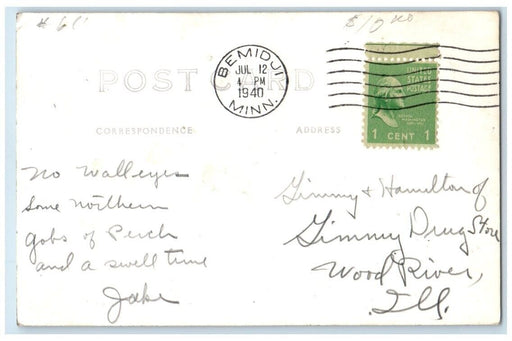 POST CARD
BEMIDJI
JUL 12
4 PM
1940
MINN.
UNITED
STATES
POSTAGE
1 CENT 1
CORRESPONDENCE
ADDRESS
No Walleyes
Some northern
gobs of Perch
and a swell time
Jake
Gimmy & Hamilton of
Gimmy Drug Store
Wood River,
Ill.